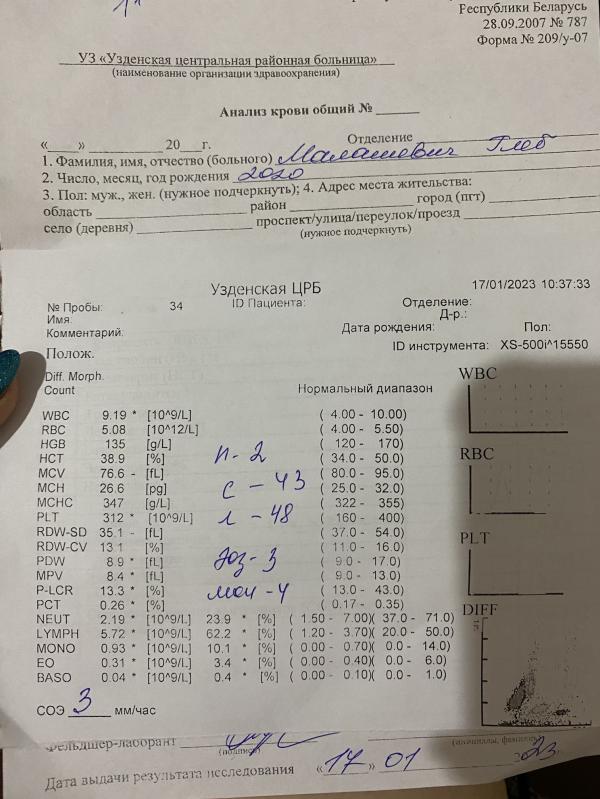 Республики Беларусь
28.09.2007 № 787
Форма № 209/у-07
УЗ «Узденская центральная районная больница»
(наименование организации здравоохранения)
Анализ крови общий № ______
«____» __________ 20___г. Отделение
1. Фамилия, имя, отчество (больного) Малашевич Глеб
2. Число, месяц, год рождения 2020
3. Пол: муж., жен. (нужное подчеркнуть); 4. Адрес места жительства:
область ____________ район ____________ город (пгт)
село (деревня) ____________ проспект/улица/переулок/проезд
(нужное подчеркнуть)
Узденская ЦРБ 17/01/2023 10:37:33
№ Пробы: 34 ID Пациента: Отделение:
Имя: Д-р.:
Комментарий: Дата рождения: Пол:
Полож. ID инструмента: XS-500i^15550
Diff. Morph.
Count Нормальный диапазон
WBC 9.19 * [10^9/L] ( 4.00 - 10.00)
RBC 5.08 [10^12/L] ( 4.00 - 5.50)
HGB 135 [g/L] ( 120 - 170)
HCT 38.9 [%] п - 2 ( 34.0 - 50.0)
MCV 76.6 - [fL] ( 80.0 - 95.0)
MCH 26.6 [pg] с - 43 ( 25.0 - 32.0)
MCHC 347 [g/L] ( 322 - 355)
PLT 312 * [10^9/L] л - 48 ( 160 - 400)
RDW-SD 35.1 - [fL] ( 37.0 - 54.0)
RDW-CV 13.1 [%] ( 11.0 - 16.0)
PDW 8.9 * [fL] эоз - 3 ( 9.0 - 17.0)
MPV 8.4 * [fL] ( 9.0 - 13.0)
P-LCR 13.3 * [%] мон - 4 ( 13.0 - 43.0)
PCT 0.26 * [%] ( 0.17 - 0.35)
NEUT 2.19 * [10^9/L] 23.9 * [%] ( 1.50 - 7.00)( 37.0 - 71.0)
LYMPH 5.72 * [10^9/L] 62.2 * [%] ( 1.20 - 3.70)( 20.0 - 50.0)
MONO 0.93 * [10^9/L] 10.1 * [%] ( 0.00 - 0.70)( 0.0 - 14.0)
EO 0.31 * [10^9/L] 3.4 * [%] ( 0.00 - 0.40)( 0.0 - 6.0)
BASO 0.04 * [10^9/L] 0.4 * [%] ( 0.00 - 0.10)( 0.0 - 1.0)
WBC
RBC
PLT
DIFF
СОЭ 3 мм/час
Фельдшер-лаборант
(подпись) (инициалы, фамилия)
Дата выдачи результата исследования «17» 01 23